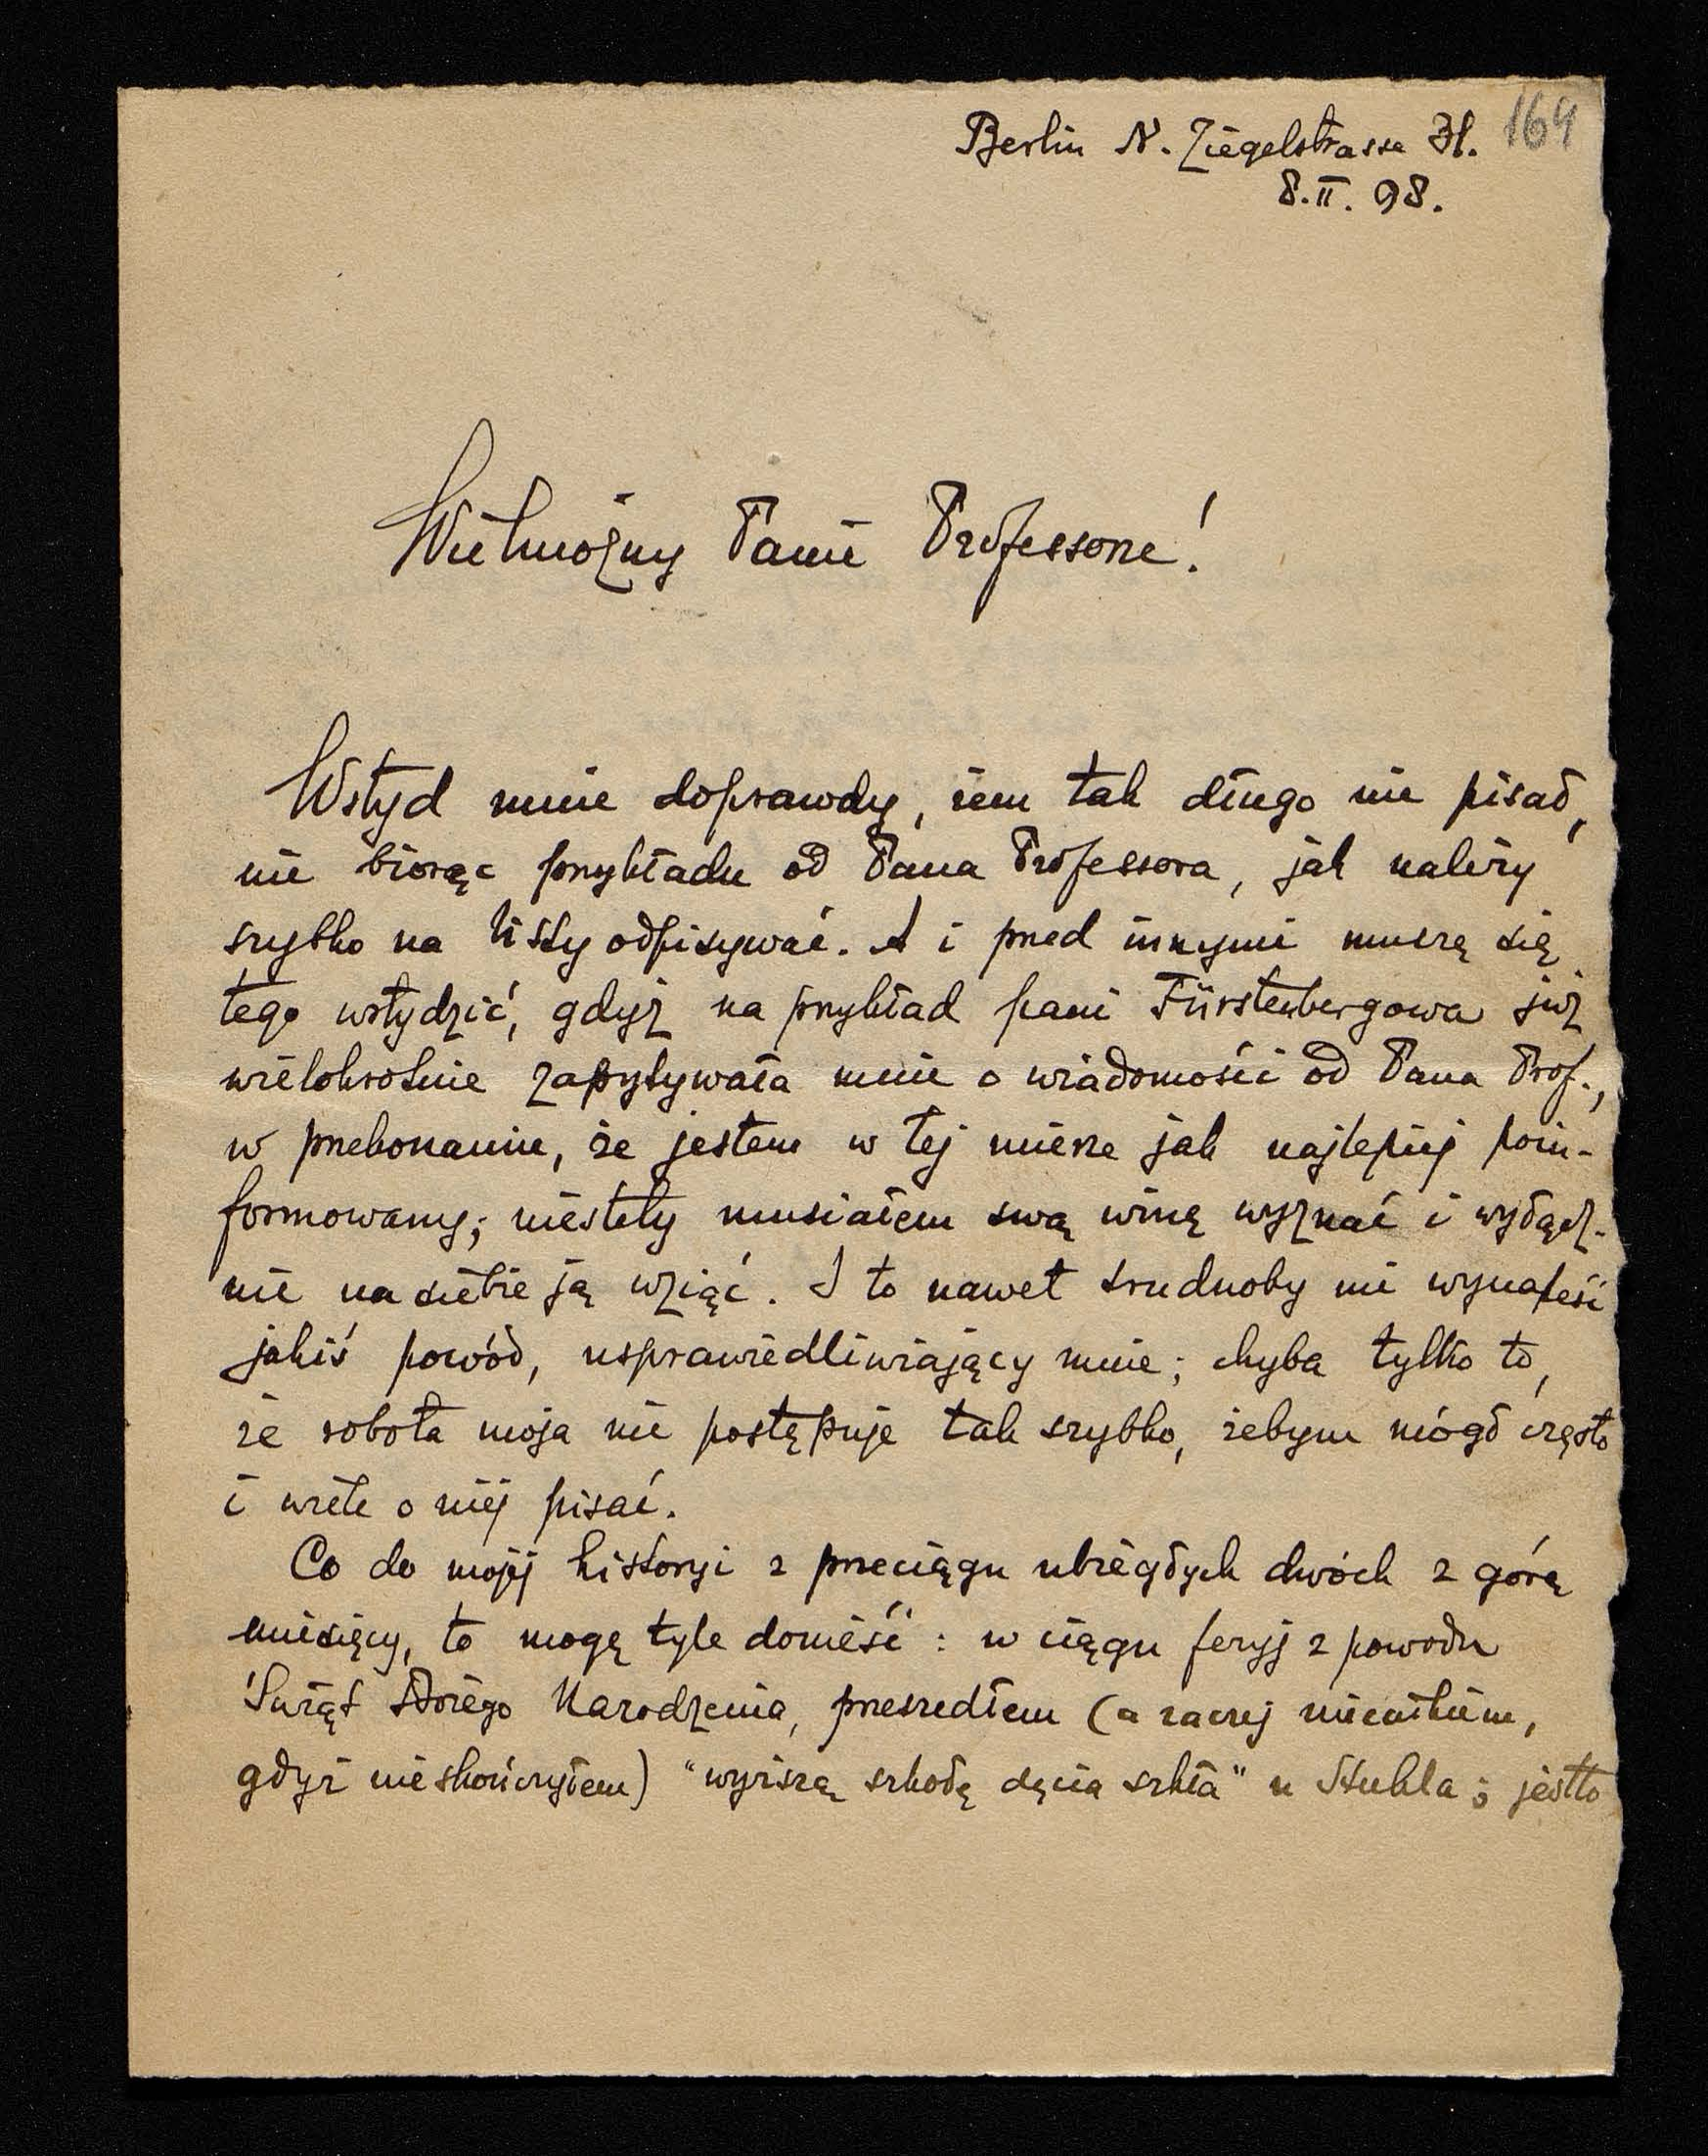 Berlin N. Ziegelstrasse 31. 164
8.II.98.
Wielmożny Panie Professorze!
Wstyd mnie doprawdy, żem tak długo nie pisał,
nie biorąc przykładu od Pana Professora, jak należy
szybko na listy odpisywać. A i przed innymi muszę się
tego wstydzić, gdyż na przykład pani Fürstenbergowa już
wielokrotnie zapytywała mnie o wiadomości od Pana Prof.,
w przekonaniu, że jestem w tej mierze jak najlepiej poin-
formowany; niestety musiałem swą winę wyznać i wyłącz-
nie na siebie ją wziąć. I to nawet trudnoby mi wynaleść
jakiś powód, usprawiedliwiający mnie; chyba tylko to,
że robota moja nie postępuje tak szybko, żebym mógł często
i wiele o niej pisać.
Co do mojej historyi z przeciągu ubiegłych dwóch z górą
miesięcy, to mogę tyle donieść: w ciągu feryj z powodu
Świąt Bożego Narodzenia, przeszedłem (a raczej
gdyż nieskończyłem) "wyższą szkołę dęcia szkła" u Stuhla; jestto